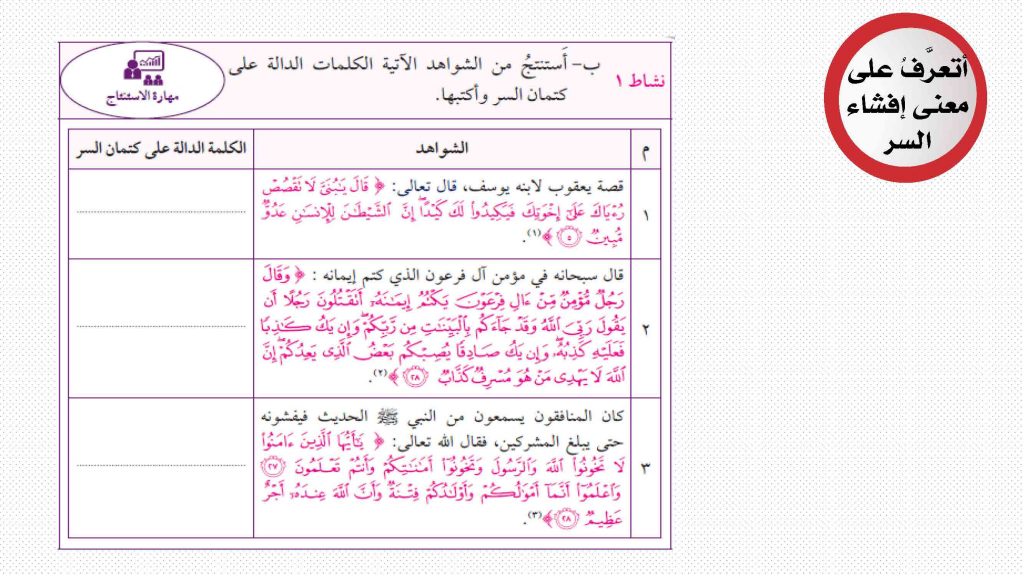 أتعرَّفُ على
معنى إفشاء
السر
نشاط ١
ب- أَستنتجُ من الشواهد الآتية الكلمات الدالة على
كتمان السر وأكتبها.
مهارة الاستنتاج
م
الشواهد
الكلمة الدالة على كتمان السر
١
قصة يعقوب لابنه يوسف، قال تعالى: ﴿ قَالَ يَٰبُنَيَّ لَا تَقۡصُصۡ
رُءۡيَاكَ عَلَىٰٓ إِخۡوَتِكَ فَيَكِيدُواْ لَكَ كَيۡدًاۖ إِنَّ ٱلشَّيۡطَٰنَ لِلۡإِنسَٰنِ عَدُوّٞ
مُّبِينٞ ۝٥ ﴾(١).
٢
قال سبحانه في مؤمن آل فرعون الذي كتم إيمانه : ﴿ وَقَالَ
رَجُلٞ مُّؤۡمِنٞ مِّنۡ ءَالِ فِرۡعَوۡنَ يَكۡتُمُ إِيمَٰنَهُۥٓ أَتَقۡتُلُونَ رَجُلًا أَن
يَقُولَ رَبِّيَ ٱللَّهُ وَقَدۡ جَآءَكُم بِٱلۡبَيِّنَٰتِ مِن رَّبِّكُمۡۖ وَإِن يَكُ كَٰذِبٗا
فَعَلَيۡهِ كَذِبُهُۥۖ وَإِن يَكُ صَادِقٗا يُصِبۡكُم بَعۡضُ ٱلَّذِي يَعِدُكُمۡۖ إِنَّ
ٱللَّهَ لَا يَهۡدِي مَنۡ هُوَ مُسۡرِفٞ كَذَّابٞ ۝٢٨ ﴾(٢).
٣
كان المنافقون يسمعون من النبي ﷺ الحديث فيفشونه
حتى يبلغ المشركين، فقال الله تعالى: ﴿ يَٰٓأَيُّهَا ٱلَّذِينَ ءَامَنُواْ
لَا تَخُونُواْ ٱللَّهَ وَٱلرَّسُولَ وَتَخُونُوٓاْ أَمَٰنَٰتِكُمۡ وَأَنتُمۡ تَعۡلَمُونَ ۝٢٧
وَٱعۡلَمُوٓاْ أَنَّمَآ أَمۡوَٰلُكُمۡ وَأَوۡلَٰدُكُمۡ فِتۡنَةٞ وَأَنَّ ٱللَّهَ عِندَهُۥٓ أَجۡرٌ
عَظِيمٞ ۝٢٨ ﴾(٣).